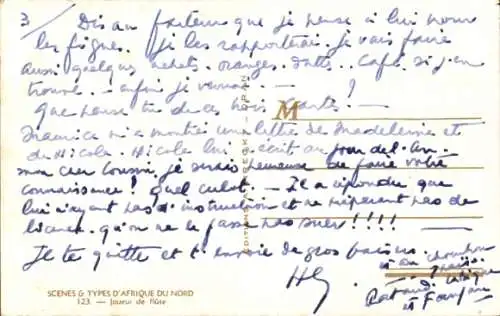 3/ Dis au facteur que je pense à lui pour
les figues. Je les rapporterai. Je vais faire
aussi quelques achats. oranges. dattes.. Café si j'en
trouve. — enfin je verrai. —
que penses tu de ces trois cartes ! —
M
Maurice m'a montré une lettre de Madeleine et
de Nicole. Nicole lui écrit au jour de l'An.
mon cher cousin, je serais heureuse de faire votre
connaissance ! quel culot. — Il a répondu que
lui n'ayant pas d'instruction et ne préparant pas de
licence. qu'on ne le fasse pas suer !!!! —
Je te quitte et t'envoie de gros baisers.
et
SCENES & TYPES D'AFRIQUE DU NORD
123 — Joueur de flûte
EDITIONS ORAN